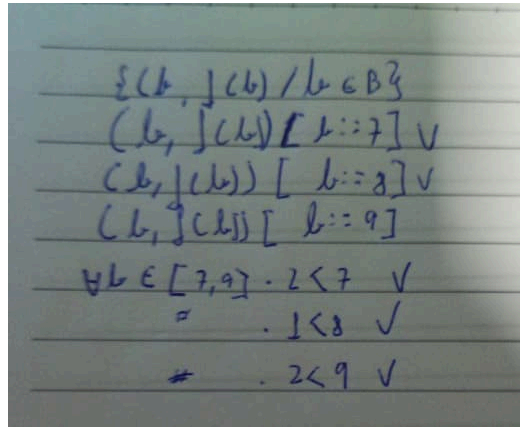 {(b, J(b) / b ∈ B}
(b, J(b)) [ b::=7] V
(b, J(b)) [ b::=8] V
(b, J(b)) [ b::=9]
∀b ∈ [7,9] . 2<7 V
= . 1<8 V
= . 2<9 V